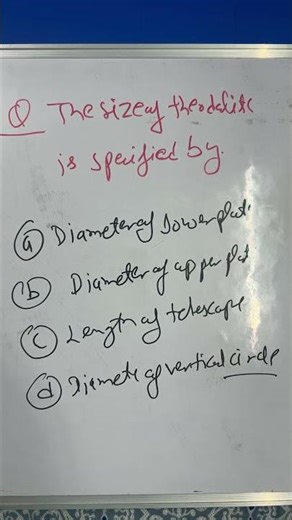 Q The size of theodalite
is spesified by.
(a) Diameter of lower plat.
(b) Diameter of upper plat
(c) Length of telescope
(d) Diamete of vertical circle